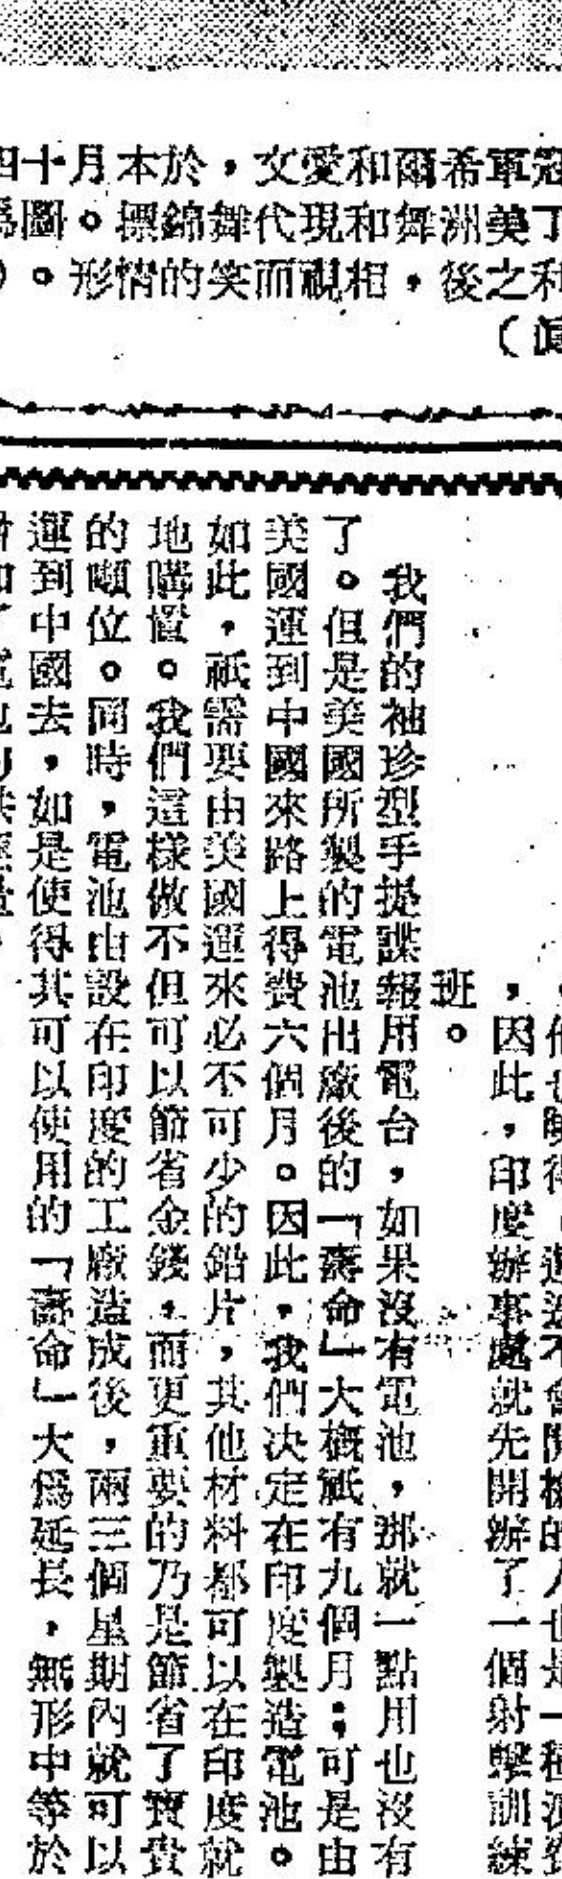 冠軍希爾和愛文，於本月十四
丁美洲舞和現代舞錦標。圖爲
利之後，相視而笑的情形。）
（
，因此，印度辦事處就先開辦了一個射擊訓練
班。
我們的袖珍型手提諜報用電台，如果沒有電池，那就一點用也沒有
了。但是美國所製的電池出廠後的「壽命」大概祇有九個月；可是由
美國運到中國來路上得費六個月。因此，我們决定在印度製造電池。
如此，祇需要由美國運來必不可少的鉛片，其他材料都可以在印度就
地購置。我們這樣做不但可以節省金錢，而更重要的乃是節省了寶貴
的噸位。同時，電池由設在印度的工廠造成後，兩三個星期內就可以
運到中國去，如是使得其可以使用的「壽命」大爲延長，無形中等於